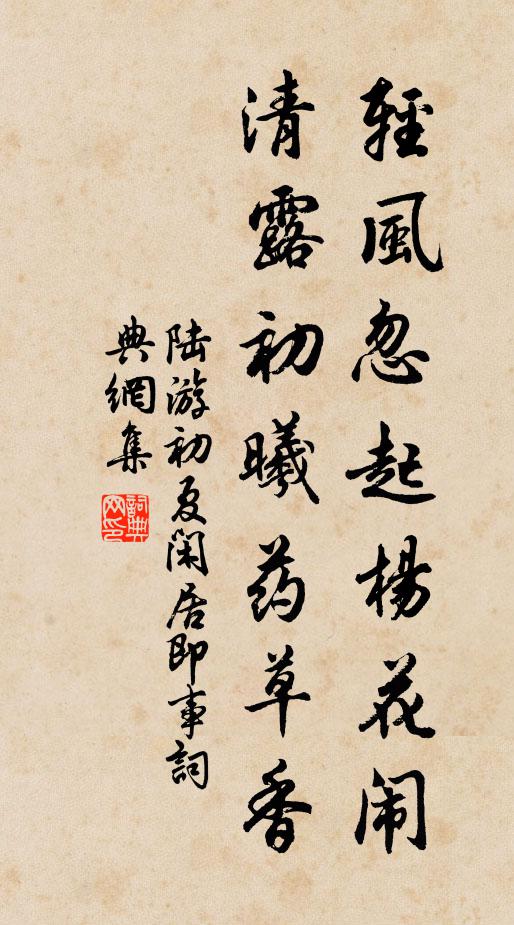 輕風忽起楊花闹
清露初曦药草香
陆游初夏閑居即事詞
典網集
詞典網印